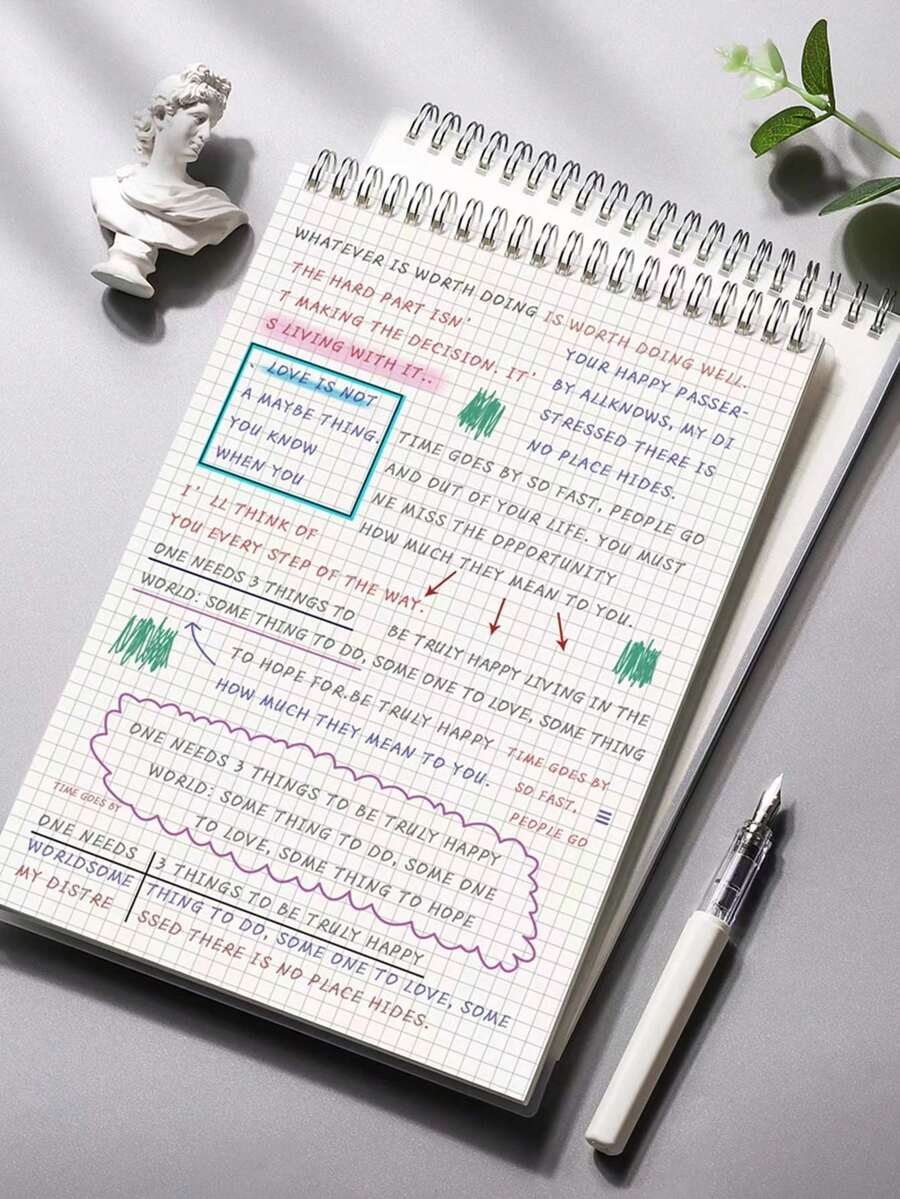 WHATEVER IS WORTH DOING IS WORTH DOING WELL.
THE HARD PART ISN'
T MAKING THE DECISION. IT'
S LIVING WITH IT..
YOUR HAPPY PASSER-
BY ALLKNOWS, MY DI
STRESSED THERE IS
NO PLACE HIDES.
` LOVE IS NOT
A MAYBE THING.
YOU KNOW
WHEN YOU
TIME GOES BY SO FAST, PEOPLE GO
AND OUT OF YOUR LIFE. YOU MUST
NE MISS THE OPPORTUNITY
HOW MUCH THEY MEAN TO YOU.
I' LL THINK OF
YOU EVERY STEP OF THE WAY.
ONE NEEDS 3 THINGS TO
BE TRULY HAPPY LIVING IN THE
WORLD: SOME THING TO DO, SOME ONE TO LOVE, SOME THING
TO HOPE FOR.BE TRULY HAPPY
HOW MUCH THEY MEAN TO YOU.
TIME GOES BY
SO FAST,
PEOPLE GO
ONE NEEDS 3 THINGS TO BE TRULY HAPPY
WORLD: SOME THING TO DO, SOME ONE
TO LOVE, SOME THING TO HOPE
TIME GOES BY
ONE NEEDS 3 THINGS TO BE TRULY HAPPY
WORLDSOME THING TO DO, SOME ONE TO LOVE, SOME
MY DISTRE SSED THERE IS NO PLACE HIDES.